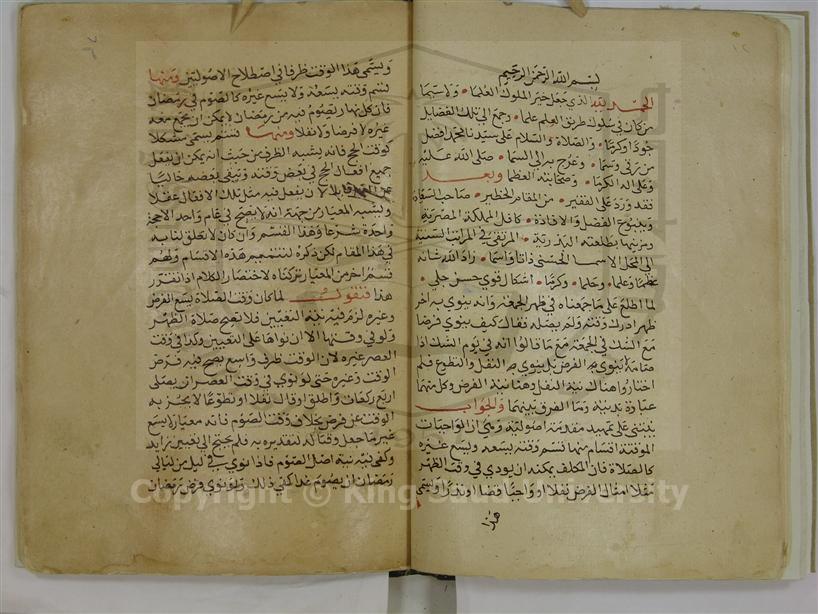 بسم الله الرحمن الرحيم
الحمد لله الذي جعل خير الملوك العلماء ولا سيما
من كان في سلوك طريق العلم علما وجمع الى تلك الفضايل
جودا وكرما والصلاة والسلام على سيدنا محمد افضل
من رقى وسما وعرج به الى السما صلى الله عليه
وعلى اله الكرما وصحابته العظما وبعد
فقد ورد على الفقير من المقام الخطير صاحب السعادة
وينبوع الفضل والافادة كافل المملكة المصرية
ومزينها بطلعته البدرية المرتقى في المراتب السنية
الى المحل الاسما الحسنى ذاتا واسما زاد الله شانه
عظما وعلما وحلما وكرما اشكال قوي حسن جلي
لما اطلع على ما جمعناه في ظهر الجمعة وانه ينوي به اخر
ظهر ادرك وقته ولم يصله فقال كيف ينوي فرضا
مع الشك في الجمعة مع ما قالوا انه في يوم الشك اذا
صامه لا ينوي به الفرض بل ينوي به النفل والتطوع فلم
اختاروا هناك نية النفل وهنا نية الفرض وكل منهما
عبادة بدنية وما الفرق بينهما والجواب
يبتنى على تمهيد مقدمة اصولية وهي ان الواجبات
الموقتة اقسام منها قسم وقته يسعه ويسع غيره
كالصلاة فان المكلف يمكنه ان يودي في وقت الظهر
مثلا امثال الفرض نفلا او واجبا قضا او نذرا ويسمى
هذا
ويسمى هذا الوقت ظرفا في اصطلاح الاصوليين ومنها
قسم وقته يسعه ولا يسع غيره كالصوم في رمضان
فان كل نهار يصوم فيه من رمضان لا يمكن ان يجمع معه
غيره لا فرضا ولا نفلا ومنها قسم يسمى مشكلا
كوقت الحج فانه يشبه الظرف من حيث انه يمكن ان يفعل
جميع افعال الحج في بعض وقته ويبقى بعضه خاليا
قابلا لان يفعل فيه مثل تلك الافعال عقلا
ويشبه المعيار من جهة انه لا يصح في عام واحد الا حجة
واحدة شرعا وهذا القسم وان كان لا تعلق لنا به
في هذا المقام لكن ذكره لتتميم هذه الاقسام ولهم
قسم اخر من المعيار تركناه لاختصار الكلام اذا تقرر
هذا فنقول لما كان وقت الصلاة يسع الفرض
وغيره لزم فيه نية التعيين فلا تصح صلاة الظهر
ولو في وقتها الا ان نواها على التعيين وكذا في وقت
العصر غيره لان الوقت ظرف واسع يصح فيه فرض
الوقت وغيره حتى لو نوى في وقت العصر ان يصلي
اربع ركعات واطلق او قال نفلا او تطوعا لا يجزيه
الوقت عن فرض بخلاف وقت الصوم فانه معيار لا يسع
غير ما جعل وقتا له لتقديره به فلم يحتج الى تعيين زايد
وكفى فيه نية اصل الصوم فاذا نوى في ليل من ليالي
رمضان ان يصوم غدا كفى ذلك ولو نوى فرض رمضان
Copyright © King Saud University